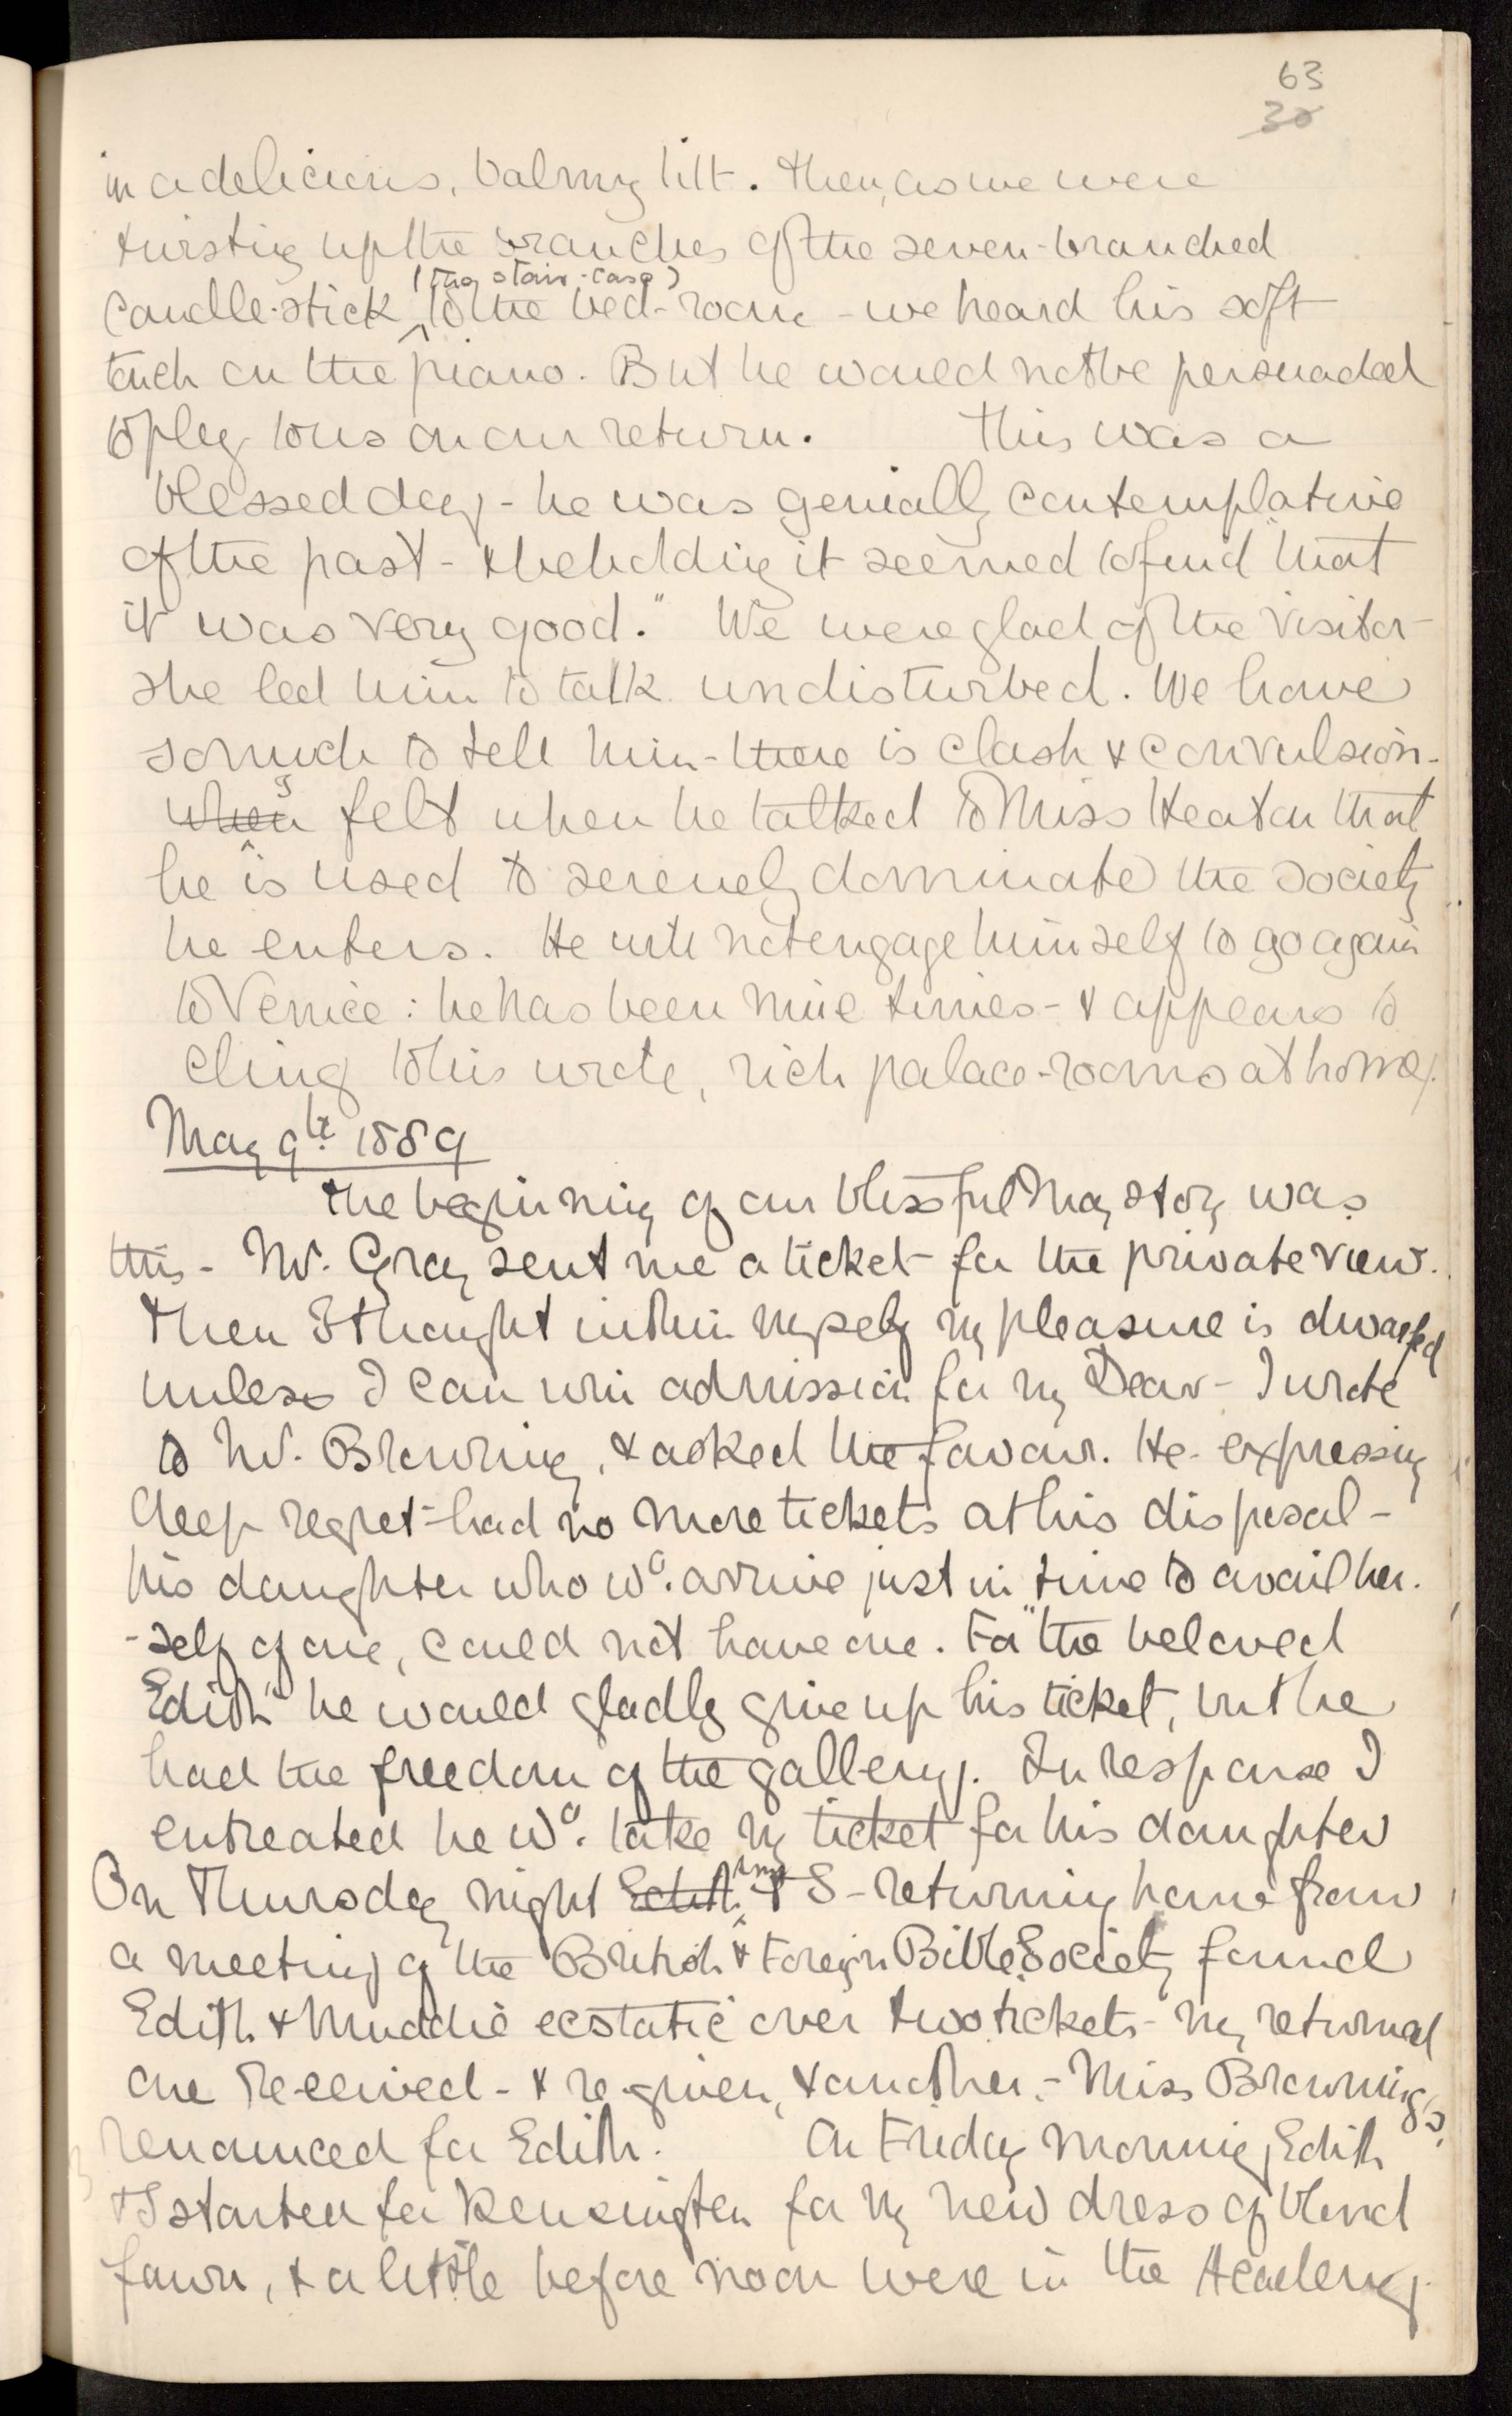 63
30
in a delicious, balmy lilt. Then, as we were
twisting up the branches of the seven-branched
(the stair-case)
candle-stick to the bed-room - we heard his soft
touch on the piano. But he would not be persuaded
to play to us on our return. This was a
blessed day - he was genially contemplative
of the past - & beholding it seemed to find "that
it was very good." We were glad of the visitor
she led him to talk undisturbed. We have
so much to tell him - there is clash & convulsion -
when I felt when he talked to Miss Heaton that
he is used to serenely dominate the society
he enters. He will not engage himself to go again
to Venice : he has been nine times - & appears to
cling to his wide, rich palace-rooms at home.
May 9th 1889
The beginning of our blissful May story was
this - Mr. Gray sent me a ticket for the private view.
Then I thought within myself my pleasure is dwarfed
unless I can win admission for my Dear - I wrote
to Mr. Browning, & asked the favour. He - expressing
deep regret - had no more tickets at his disposal -
his daughter who wd. arrive just in time to avail her-
-self of one, could not have one. For "the beloved
Edith" he would gladly give up his ticket, but he
had the freedom of the gallery. In response I
entreated he wd. take my ticket for his daughter
On Thursday night Edith Amy & I - returning home from
a meeting of the British & Foreign Bible Society found
Edith & Muddie ecstatic over two tickets - my returned
one received - & re-given, & another - Miss Browning's
renounced for Edith. On Friday morning Edith
& I started for Kensington for my new dress of blend
fawn, & a little before noon were in the Academy.